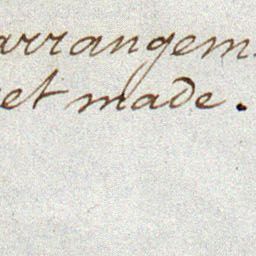 arrangem
et made.